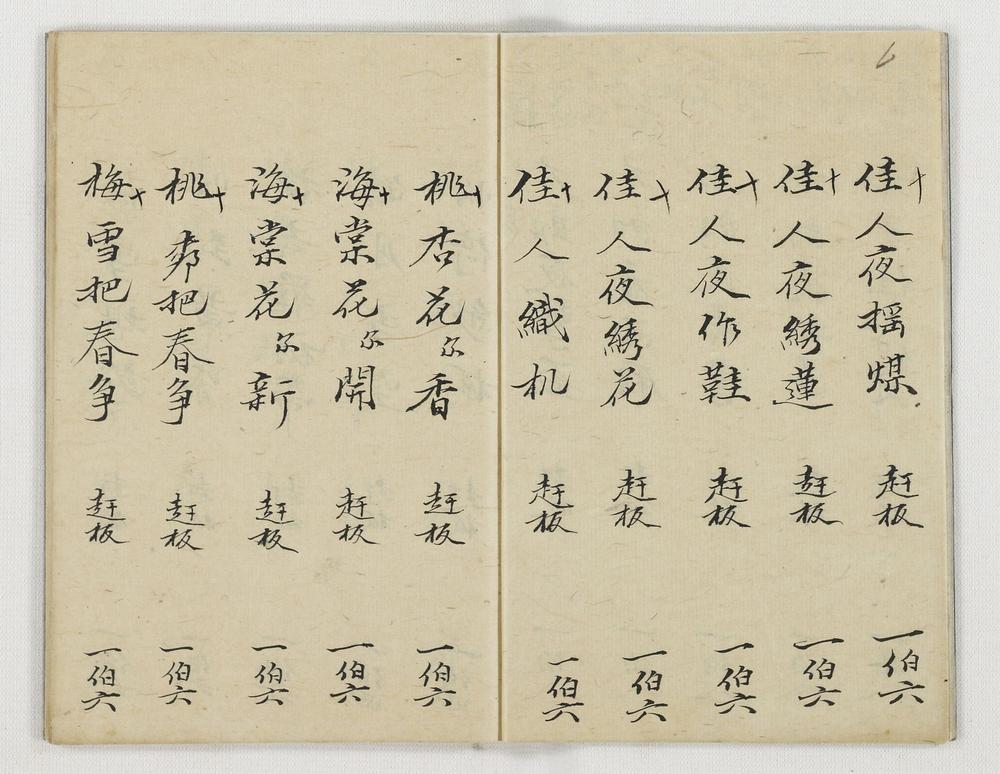 6
佳人夜摇煤 赶板 一伯六
佳人夜綉蓮 赶板 一伯六
佳人夜作鞋 赶板 一伯六
佳人夜綉花 赶板 一伯六
佳人織机 赶板 一伯六
桃杏花尔香 赶板 一伯六
海棠花尔開 赶板 一伯六
海棠花尔新 赶板 一伯六
桃把春争 赶板 一伯六
梅雪把春争 赶板 一伯六